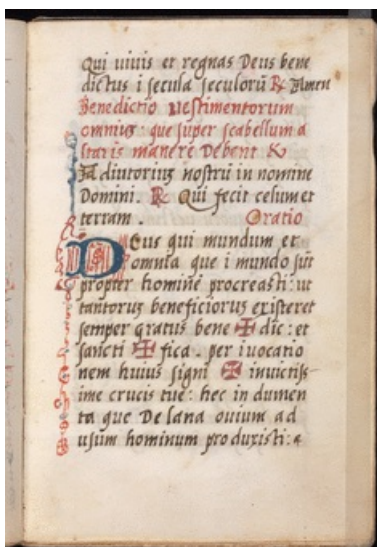 Qui uiuis et regnas Deus bene
dictus i secula seculorū ℟ Amen
Benedictio uestimentorum
omniuʒ : que super scabellum a
staris manere Debent &
Adiutoriuʒ nostrū in nomine
Domini . ℟ Qui fecit celum et
terram Oratio
Deus qui mundum et
omnia que i mundo sūt
propter hominē procreasti : ut
tantoruʒ beneficioruʒ existeret
semper gratus bene ✠ dic : et
sancti ✠ fica . per iuocatio
nem huius signi ✠ inuictiss-
ime crucis tue : hec in dumen
ta que De lana ouium ad
usum hominum produxisti :